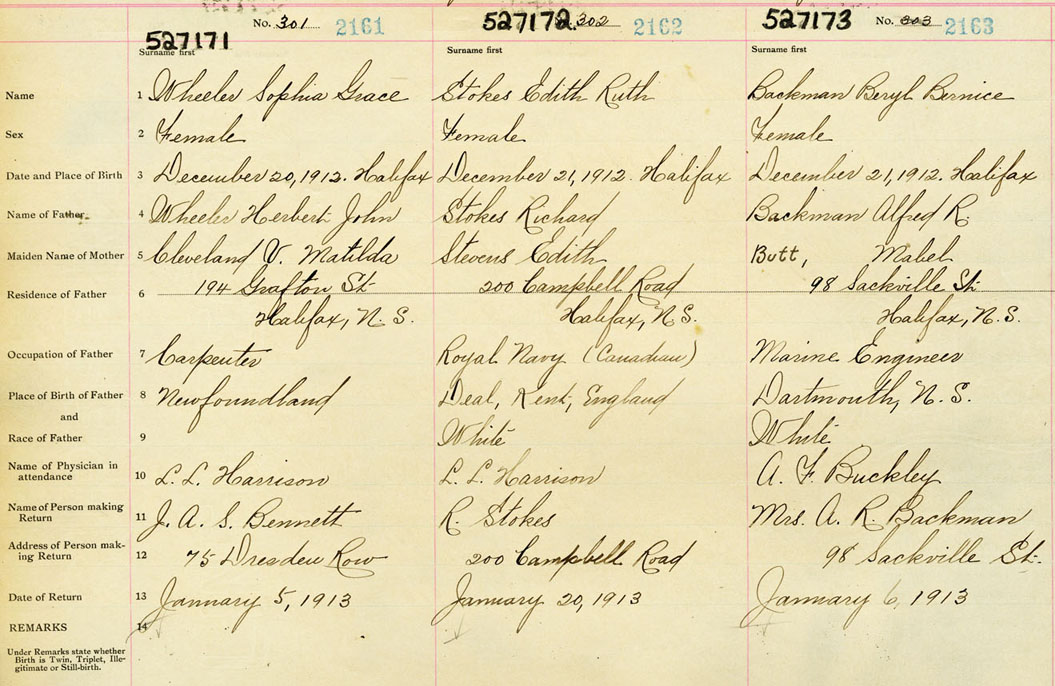 No. 301 2161 527172 302 2162 527173 No. 303 2163
527171
Surname first Surname first Surname first
Name 1 Wheeler Sophia Grace Stokes Edith Ruth Backman Beryl Bernice
Sex 2 Female Female Female
Date and Place of Birth 3 December 20, 1912. Halifax December 21, 1912. Halifax December 21, 1912. Halifax
Name of Father 4 Wheeler Herbert John Stokes Richard Backman Alfred R.
Maiden Name of Mother 5 Cleveland V. Matilda Stevens Edith Butt, Mabel
Residence of Father 6 194 Grafton St. 200 Campbell Road 98 Sackville St.
Halifax, N.S. Halifax, N.S. Halifax, N.S.
Occupation of Father 7 Carpenter Royal Navy (Canadian) Marine Engineer
Place of Birth of Father 8 Newfoundland Deal, Kent, England Dartmouth, N.S.
and
Race of Father 9 White White
Name of Physician in
attendance 10 L. L. Harrison L. L. Harrison A. F. Buckley
Name of Person making
Return 11 J. A. S. Bennett R. Stokes Mrs. A. R. Backman
Address of Person mak-
ing Return 12 75 Dresden Row 200 Campbell Road 98 Sackville St.
Date of Return 13 January 5, 1913 January 20, 1913 January 6, 1913
REMARKS 14
Under Remarks state whether
Birth is Twin, Triplet, Ille-
gitimate or Still-birth.